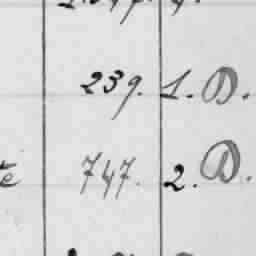 239. 1. D.
te 747. 2. D.